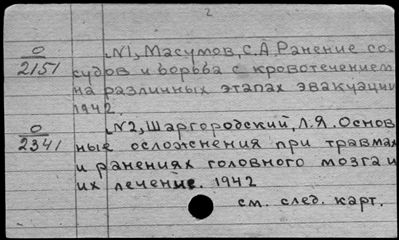 2
О
2151
N1, Масумов, С.А. Ранение со-
судов и борьба с кровотечением
на различных этапах эвакуации
1942.
О
2341
N2, Шаргородский, Л.Я. Основ
ные осложнения при травмах
и ранениях головного мозга и
их лечение. 1942
см. след. карт.